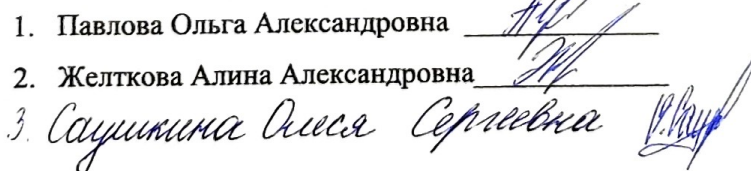 1. Павлова Ольга Александровна
2. Желткова Алина Александровна
3. Саушкина Олеся Сергеевна